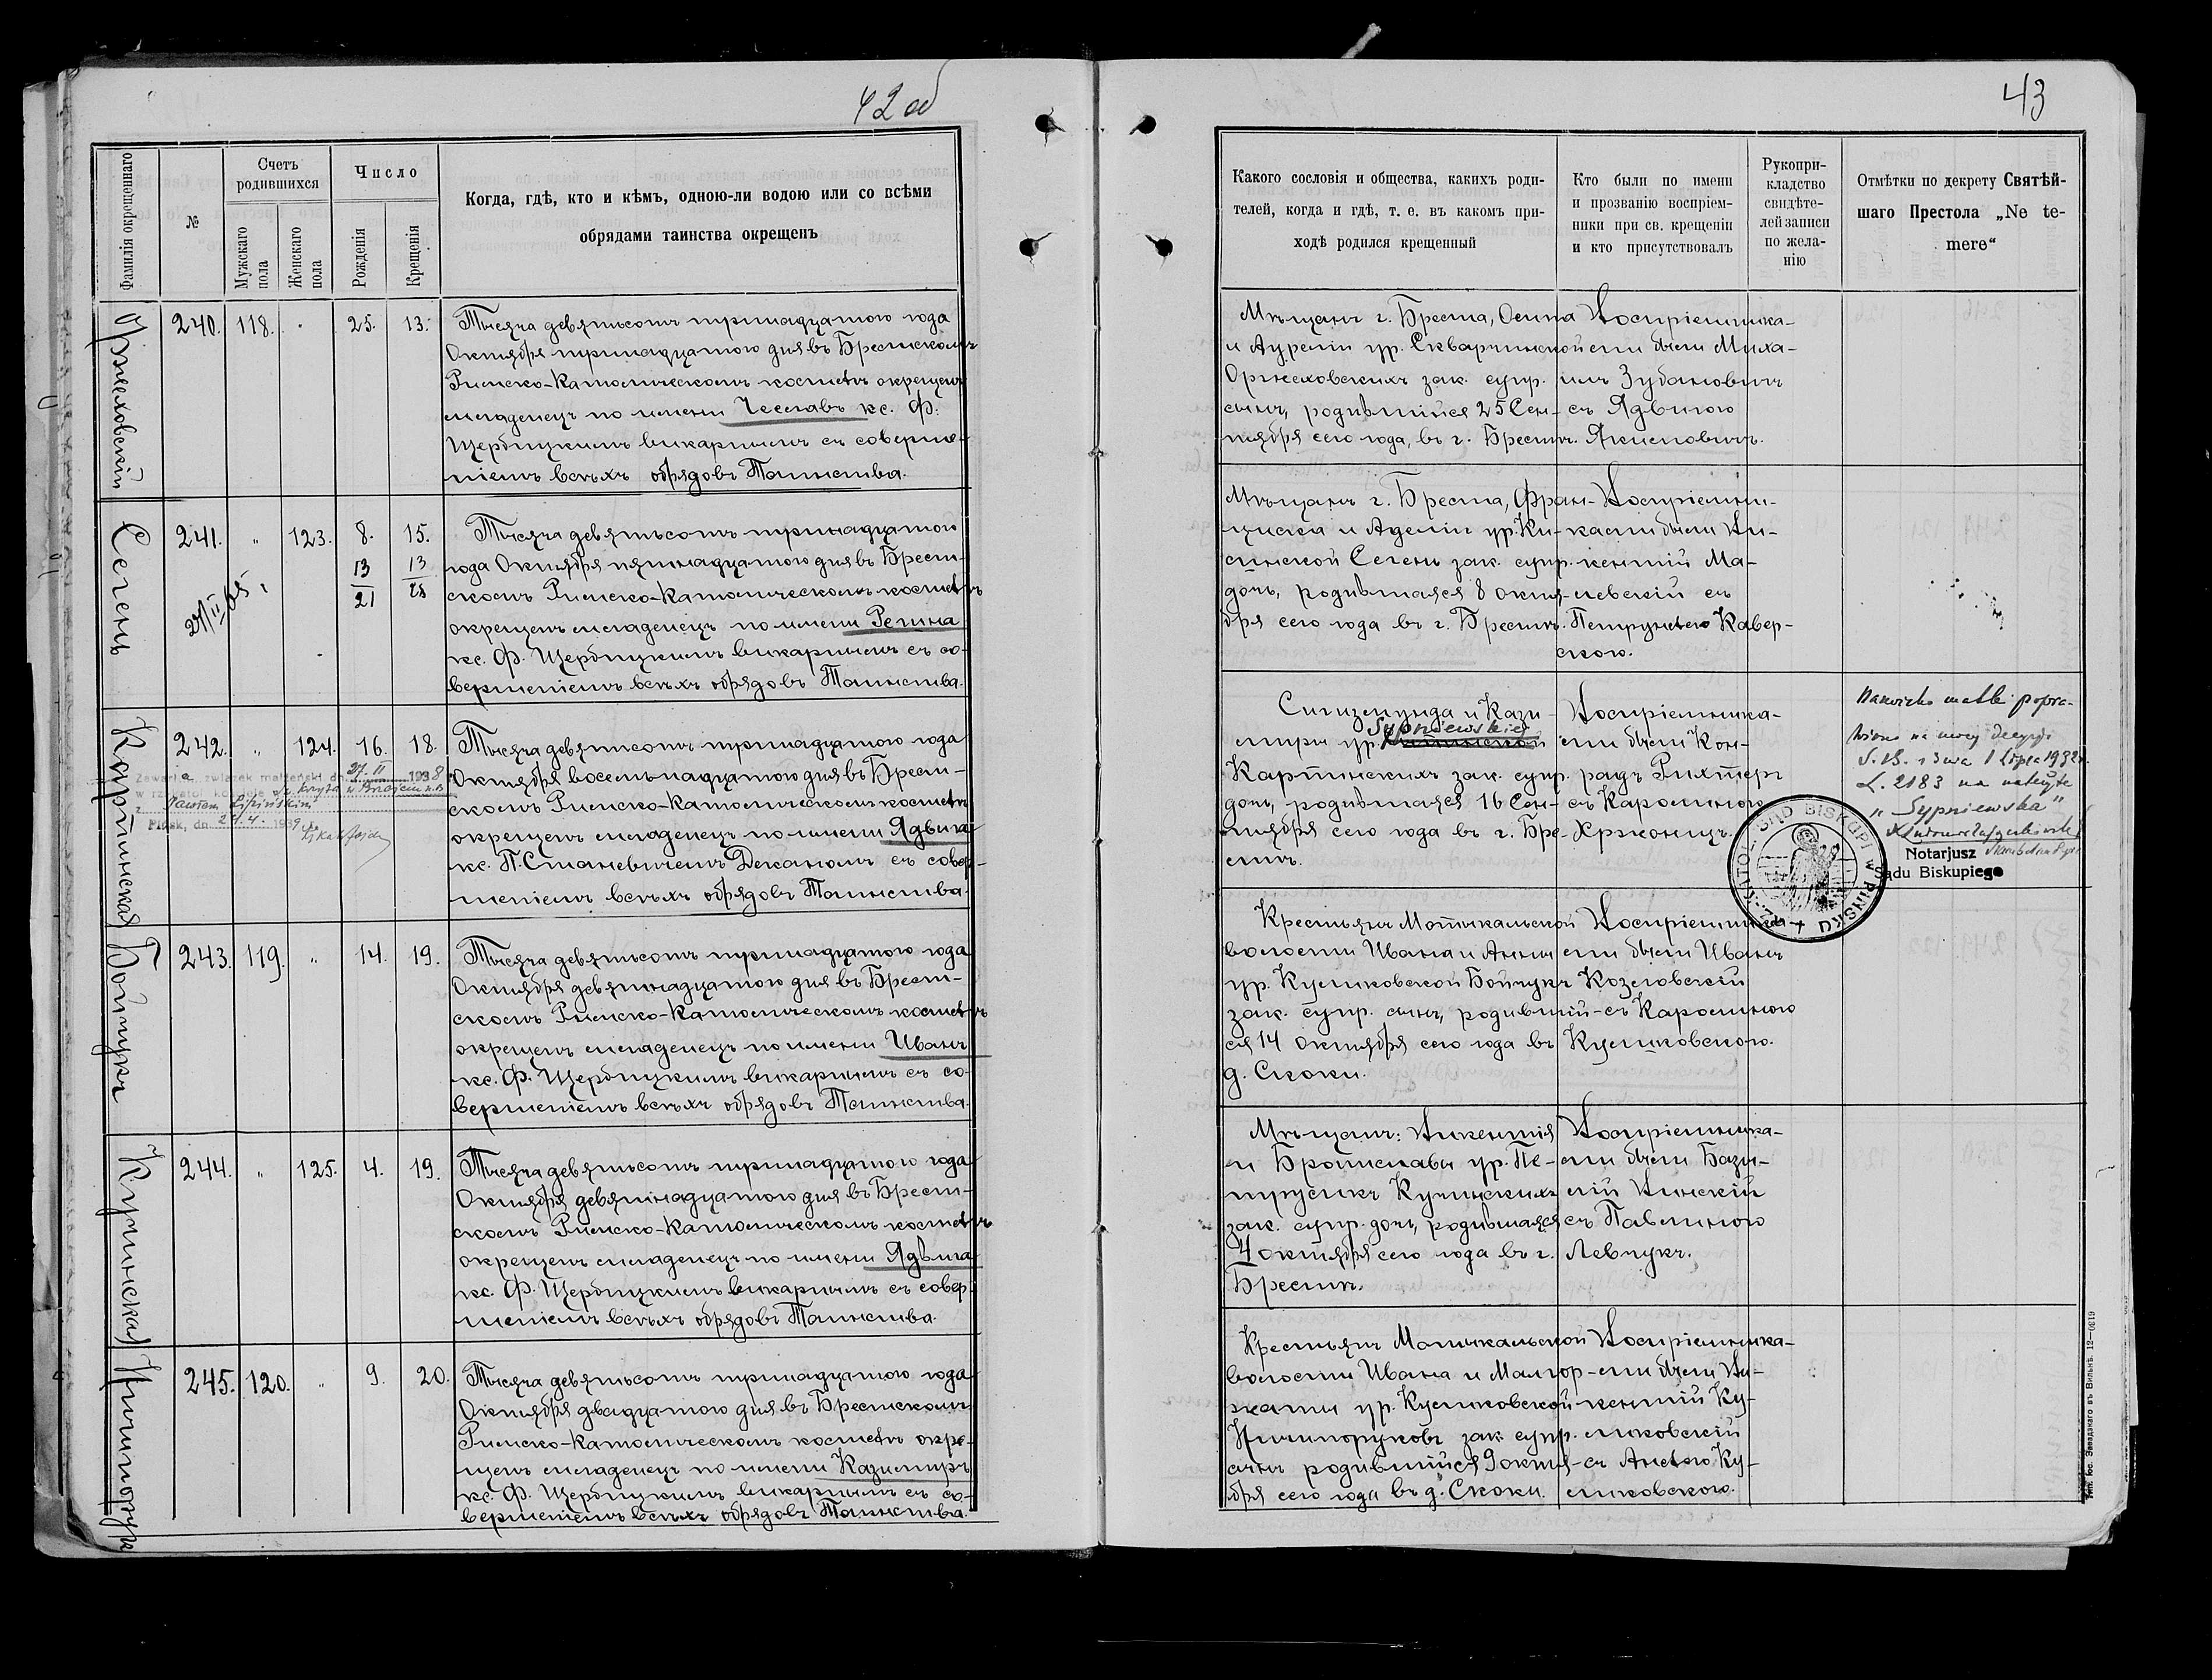 42 об
Фамилія окрещеннаго
№
Счетъ родившихся
Мужскаго пола
Женскаго пола
Число
Рожденія
Крещенія
Когда, гдѣ, кто и кѣмъ, одною-ли водою или со всѣми
обрядами таинства окрещенъ
Оржеховскій
240. 118. 25. 13.
Тысяча девятьсотъ тринадцатого года
Октября тринадцатого дня въ Брестскомъ
Римско-Католическомъ костелѣ окрещенъ
младенецъ по имени Чеславъ кс. Ф.
Щербицкимъ викаріемъ съ соверше-
ніемъ всѣхъ обрядовъ Таинства.
Сегень
241. " 123. 8. 15.
13 13
21 28
Тысяча девятьсотъ тринадцатого
года Октября пятнадцатого дня въ Брест-
скомъ Римско-Католическомъ костелѣ
окрещенъ младенецъ по имени Регина
кс. Ф. Щербицкимъ викаріемъ съ со-
вершеніемъ всѣхъ обрядовъ Таинства.
Карпинская
242. " 124. 16. 18.
Zawarła związek małżeński dn. 27. II 1938
Pińsk, dn. 4. 1939 r.
Тысяча девятьсотъ тринадцатого года
Октября восемьнадцатого дня въ Брест-
скомъ Римско-Католическомъ костелѣ
окрещенъ младенецъ по имени Ядвига
кс. П. Станевичемъ Деканомъ съ совер-
шеніемъ всѣхъ обрядовъ Таинства.
Бойчукъ
243. 119. " 14. 19.
Тысяча девятьсотъ тринадцатого года
Октября девятнадцатого дня въ Брест-
скомъ Римско-Католическомъ костелѣ
окрещенъ младенецъ по имени Иванъ
кс. Ф. Щербицкимъ викаріемъ съ со-
вершеніемъ всѣхъ обрядовъ Таинства.
Кучинская
244. " 125. 4. 19.
Тысяча девятьсотъ тринадцатого года
Октября девятнадцатого дня въ Брест-
скомъ Римско-Католическомъ костелѣ
окрещенъ младенецъ по имени Ядвига
кс. Ф. Щербицкимъ викаріемъ съ совер-
шеніемъ всѣхъ обрядовъ Таинства.
Ничипорукъ
245. 120. " 9. 20.
Тысяча девятьсотъ тринадцатого года
Октября двадцатого дня въ Брестскомъ
Римско-Католическомъ костелѣ окре-
щенъ младенецъ по имени Казимиръ
кс. Ф. Щербицкимъ викаріемъ съ со-
вершеніемъ всѣхъ обрядовъ Таинства.
43
Какого сословія и общества, какихъ роди-
телей, когда и гдѣ, т. е. въ какомъ при-
ходѣ родился крещенный
Кто были по имени
и прозванію воспріем-
ники при св. крещеніи
и кто присутствовалъ
Рукопри-
кладство
свидѣте-
лей записи
по жела-
нію
Отмѣтки по декрету Святѣй-
шаго Престола „Ne te-
mere“
Мѣщанъ г. Бреста, Осипа
и Аурелій ур. Скварчинской
Оржеховскихъ зак. супр.
сынъ, родившійся 25 Сен-
тября сего года, въ г. Брестѣ.
Воспріемника-
ми были Миха-
илъ Зубановичъ
съ Ядвигою
Мѣщанъ г. Бреста, Фран-
циска и Аделіи ур. Ки-
синской Сегень зак. супр.
дочь, родившаяся 8 Октя-
бря сего года въ г. Брестѣ.
Воспріемни-
ками были Ви-
кентій Ма-
левскій съ
Кавер-
скою.
Сигизмунда и Кази-
миры ур. Sypniewskiej
Карпинскихъ зак. супр.
дочь, родившаяся 16 Сен-
тября сего года въ г. Бре-
стѣ.
Воспріемника-
ми были Кон-
радъ Рихтеръ
съ Каролиною
Nazwisko matki popra-
wiono na mocy decyzji
S. B. z dnia 1 Lipca 1932 r.
L. 2183 na należyte
„Sypniewska”
Notarjusz
Sądu Biskupiego
SĄD BISKUPI w PIŃSKU
Крестьянъ Мотыкальской
волости Ивана и Анны
ур. Куликовской Бойчукъ
зак. супр. сынъ, родившій-
ся 14 Октября сего года въ
д. Скоки.
Воспріемника-
ми были Иванъ
Козловскій
съ Каролиною
Куликовскою.
Мѣщанъ: Викентія
и Брониславы ур. Пе-
трусикъ Кучинскихъ
зак. супр. дочь, родившаяся
4 Октября сего года въ г.
Брестѣ.
Воспріемника-
ми были Вази-
лій Винскій
съ Павлиною
Левчукъ.
Крестьянъ Мотыкальской
волости Ивана и Малгор-
жаты ур. Куликовской
Ничипоруковъ зак. супр.
сынъ родившійся 9 Октя-
бря сего года въ д. Скоки.
Воспріемника-
ми были Ви-
кентій Ку-
ликовскій
съ Анелею Ку-
ликовскою.
Тип. Іос. Завадзкаго въ Вильнѣ.